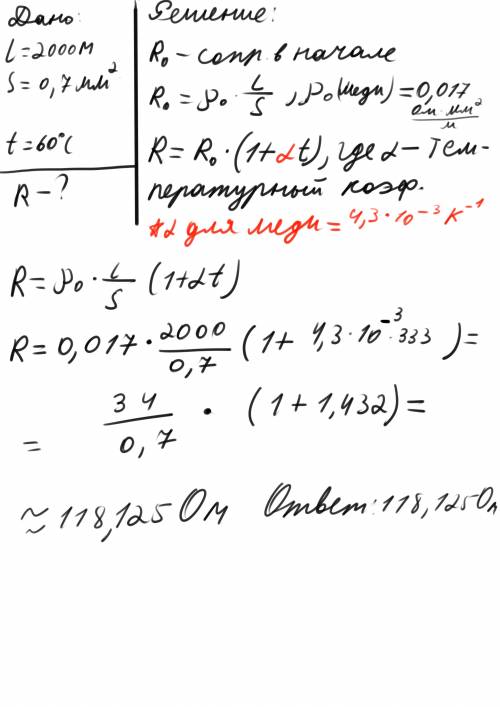 Дано:
l = 2000 м
S = 0,7 мм²
t = 60°C
R - ?
Решение:
R₀ - сопр. в начале
R₀ = ρ₀ · l/S , ρ₀ (меди) = 0,017 Ом·мм²/м
R = R₀ · (1+αt), где α - тем-
пературный коэф.
*α для меди = 4,3·10⁻³ K⁻¹
R = ρ₀ · l/S (1+αt)
R = 0,017 · 2000/0,7 (1+ 4,3·10⁻³·333) =
= 34/0,7 · (1 + 1,432) =
≈ 118,125 Ом Ответ: 118,125 Ом